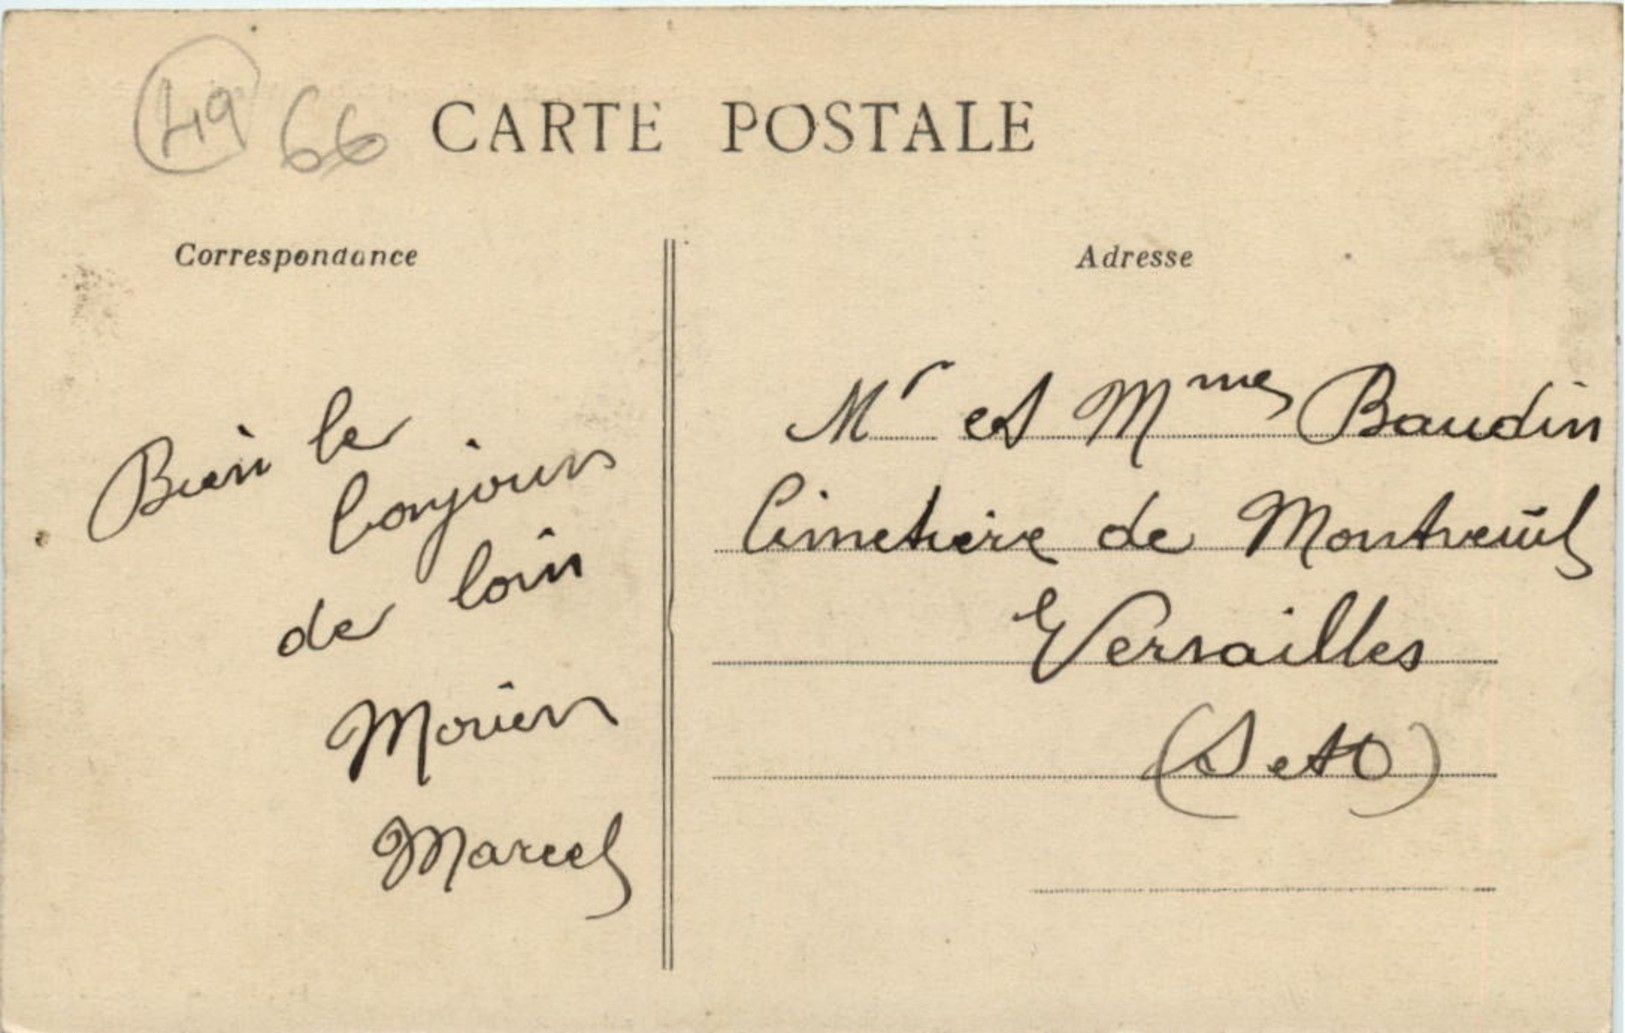 49 66 CARTE POSTALE
Correspondance
Bien le
bonjour
de loin
Marcel
Adresse
Mr et Mme Baudin
Cimetière de Montreuil
Versailles
(S et O)